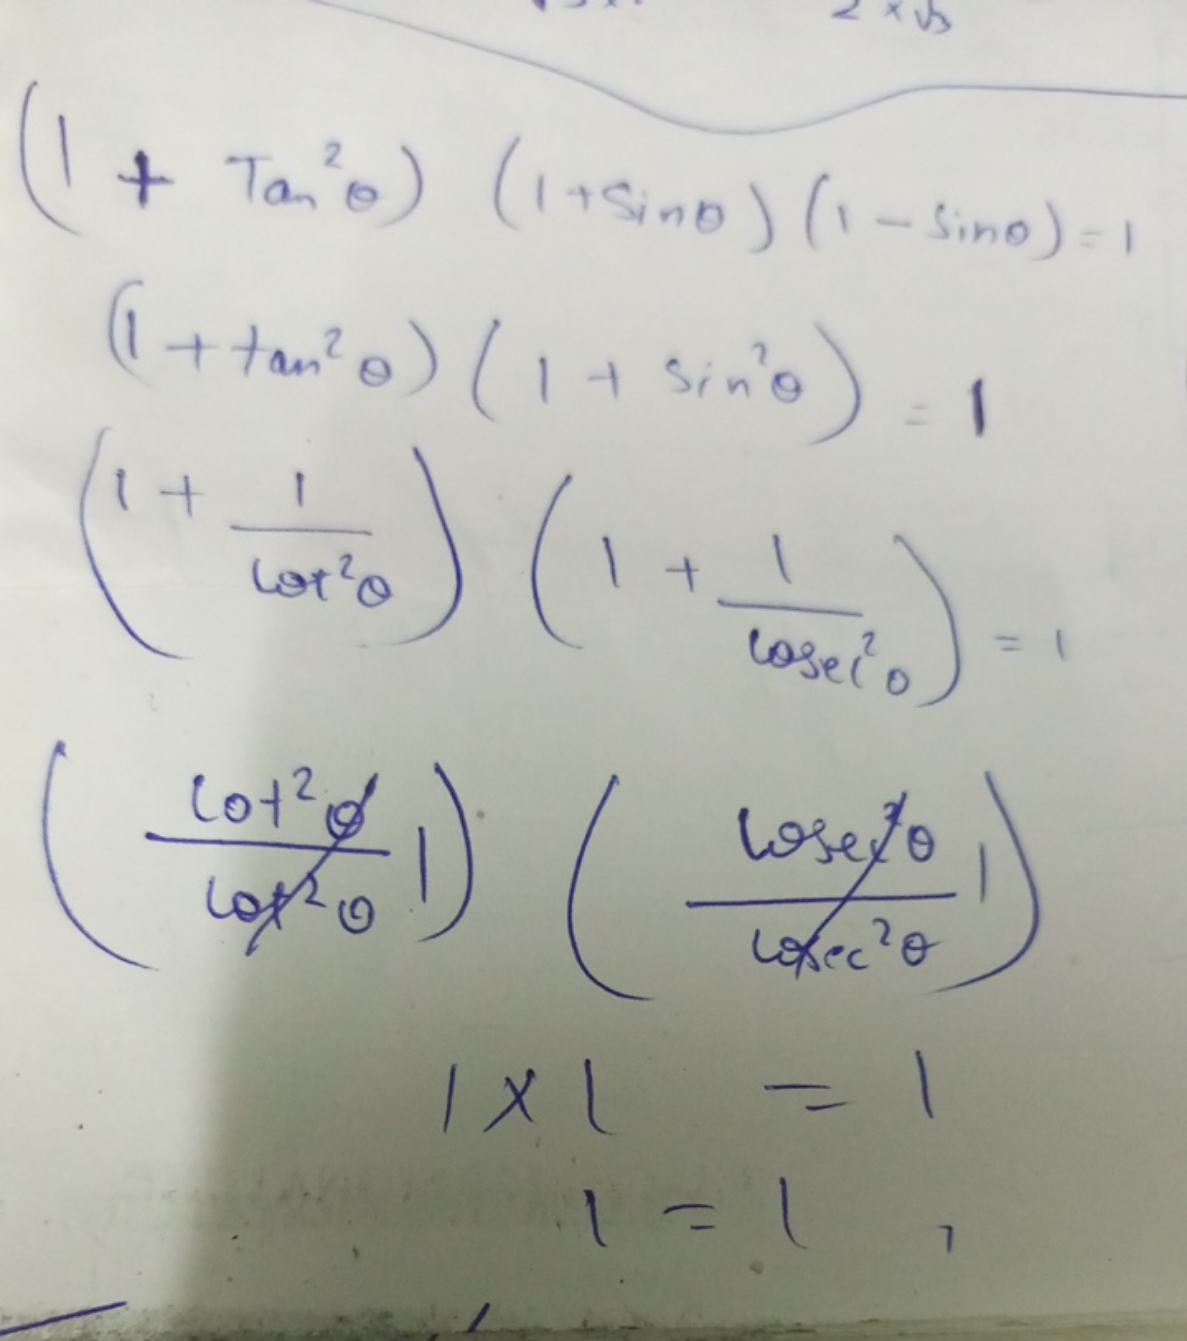 2 × √3
(1 + Tan²θ) (1+Sinθ) (1 - Sinθ) = 1
(1 + tan²θ) (1 + Sin²θ) = 1
(1 + 1/cot²θ) (1 + 1/cosec²θ) = 1
(cot²θ/cot²θ 1) (cosec²θ/cosec²θ 1)
1 × 1 = 1
1 = 1 ,